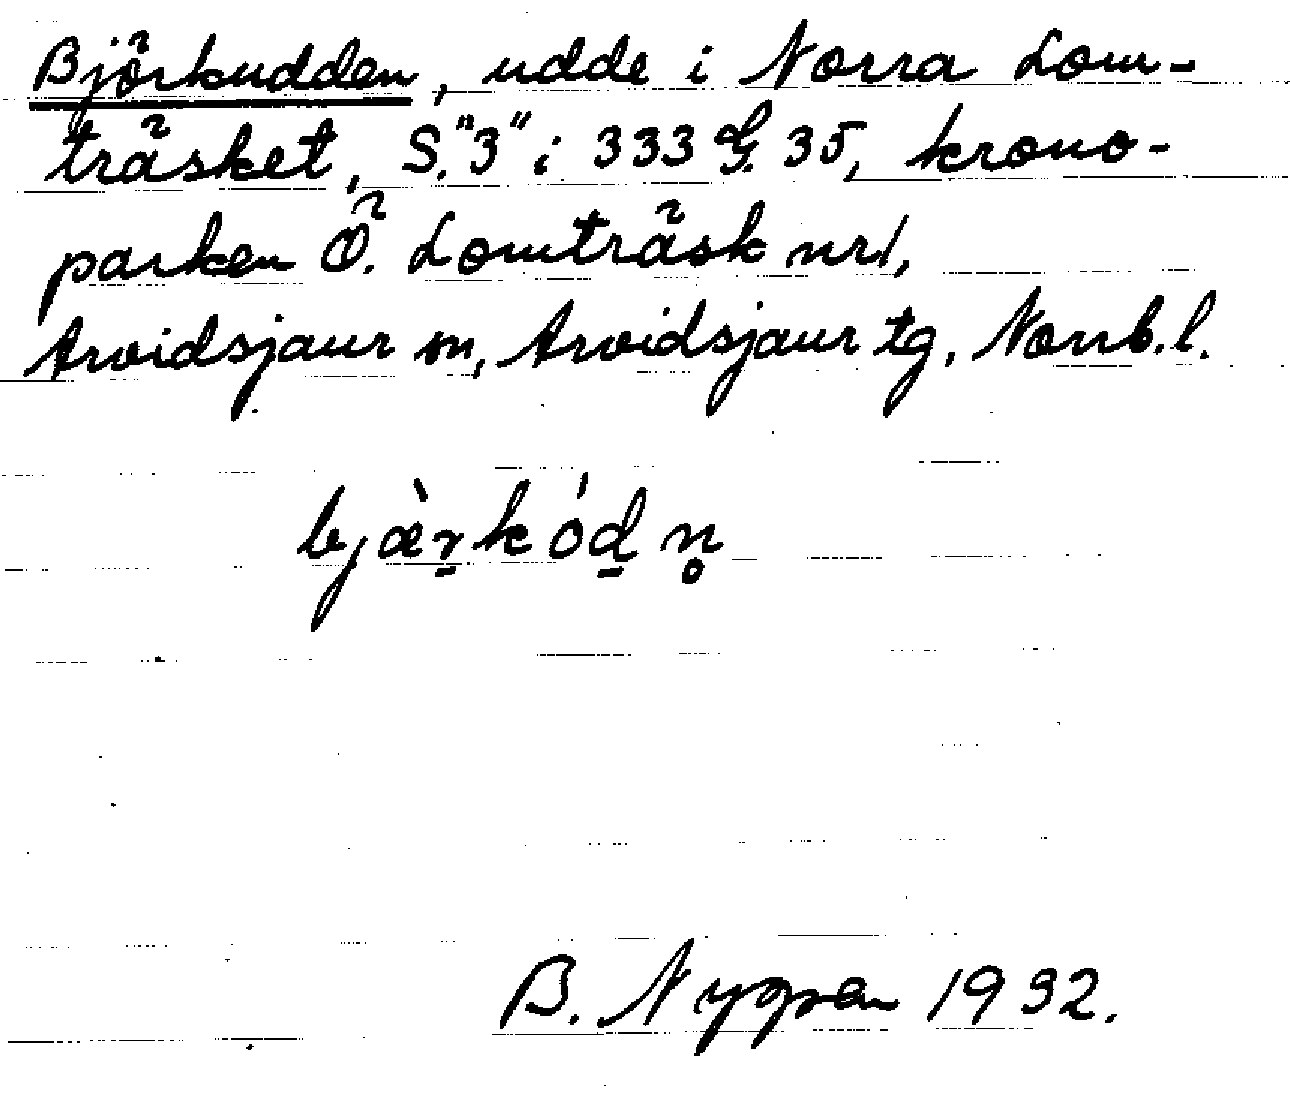 Björkudden, udde i Norra Lom-
träsket, S. "3" i 333 G. 35, krono-
parken Ö. Lomträsk nr 1,
Arvidsjaur sn, Arvidsjaur tg, Norrb. l.
bjæ̀r̠kód̠n̥
B. Nygren 1932.